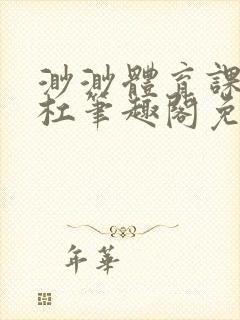 渺渺體育課
杜筆趣閣免
年華